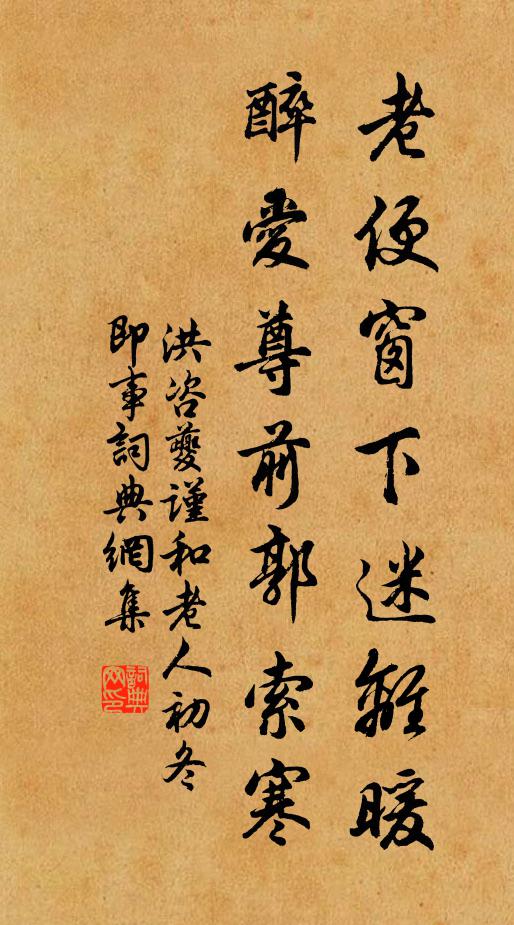 老便窗下迷離暖
醉愛尊前郭索寒
洪咨夔謹和老人初冬
即事詞典網集
詞典網印